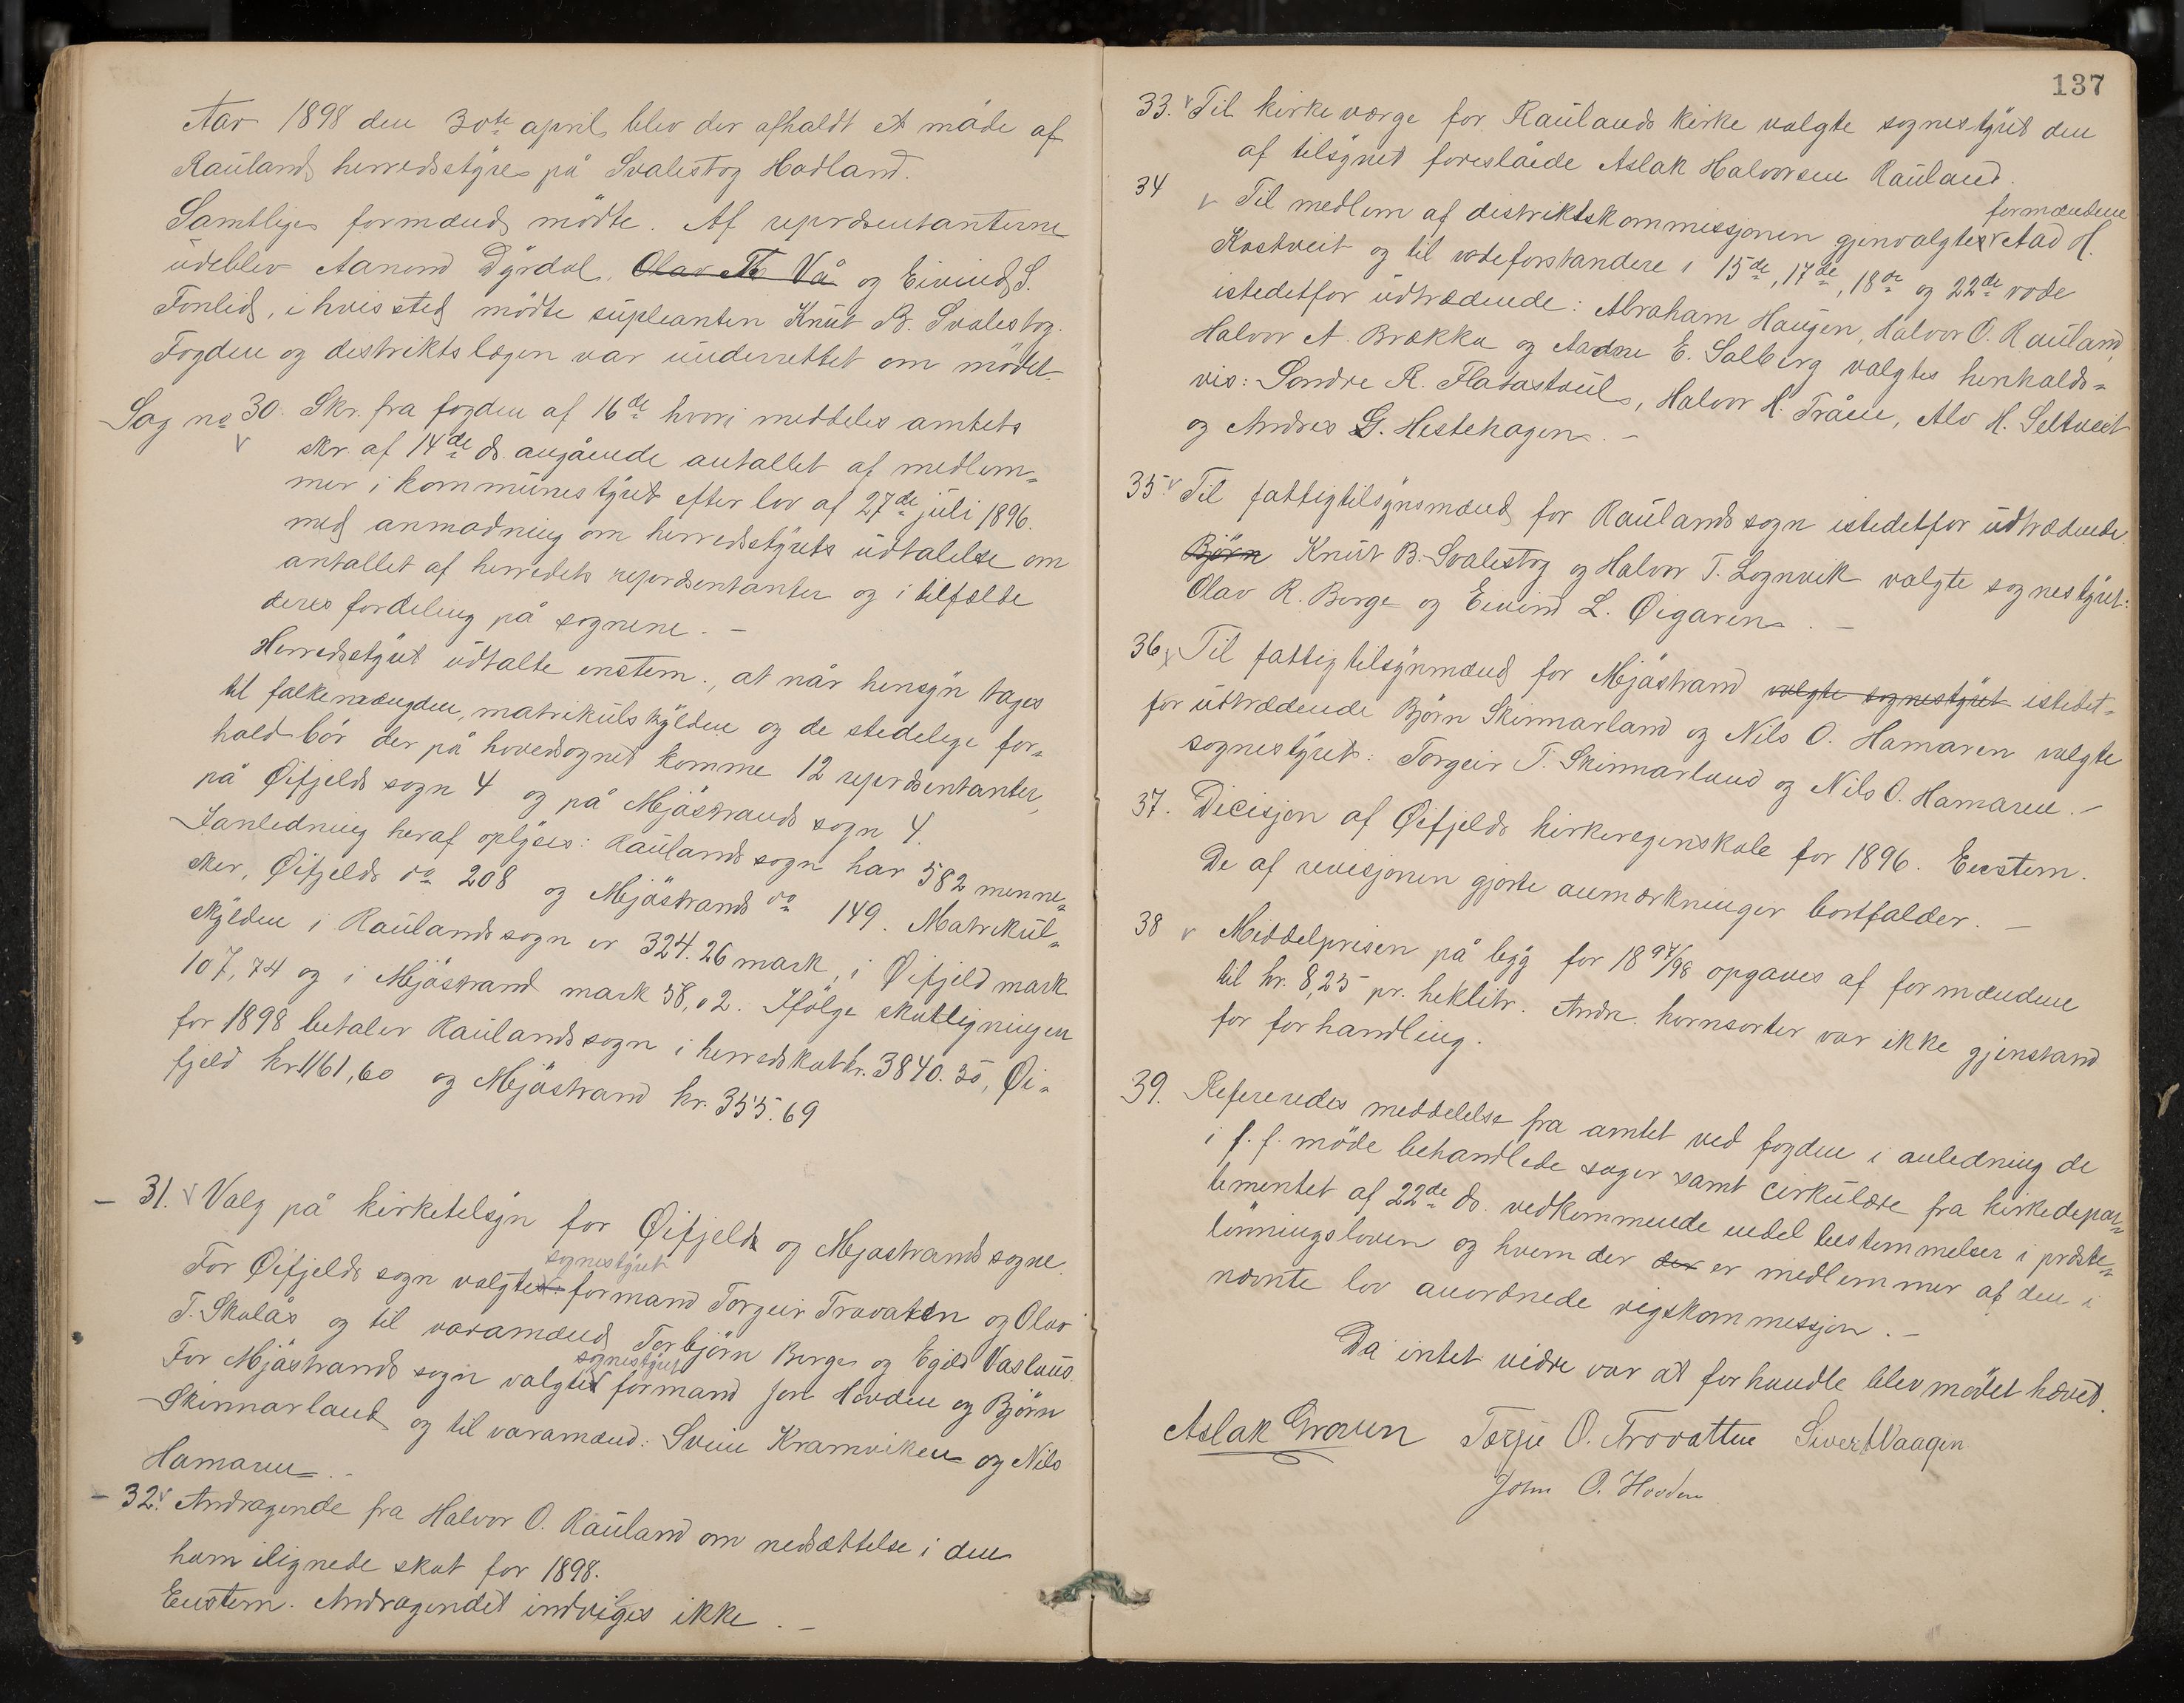 Aar 1898 den 30te april blev der afholdt et møde af
Raulands herredsstyre på Svalestog Hadland.
Samtlige formænd mødte. Af repræsentanterne
udeblev Aanond Dyrdal, Olav Th Vå og Eivind S.
Fonlid, i hvis sted mødte supleanten Knut B. Svalestog.
Fogden og distriktslægen var underrettet om mødet.
Sag no 30. Skr. fra fogden af 16de hvori meddeles amtets
skr. af 14de ds. angående antallet af medlem=
mer i kommunestyret efter lov af 27de juli 1896.
med anmodning om herredsstyrets udtalelse om
antallet af herredets repræsentanter og i tilfælde
deres fordeling på sognene. –
Herredsstyret udtalte enstem., at når hensyn tages
til folkemængden, matrikulskylden og de stedelige for=
hold bør der på hovedsognet komme 12 repræsentanter,
på Øifjelds sogn 4 og på Mjøstrands sogn 4.
I anledning heraf oplyses: Raulands sogn har 582 menne=
sker, Øifjelds do 208 og Mjøstrands do 149. Matrikul=
skylden i Raulands sogn er 324.26 mark, i Øifjeld mark
107,74 og i Mjøstrand mark 58,02. Ifølge skatligningen
for 1898 betaler Raulands sogn i herredskat kr. 3840.30, Øi=
fjeld kr 1161,60 og Mjøstrand kr. 355.69
– 31. v Valg på kirketilsyn for Øifjelds og Mjøstrands sogne.
sognestyret
For Øifjelds sogn valgtes formand Torgeir Trovaten og Olav
T. Skalås og til varamænd Torbjørn Berge og Egild Vaslaus.
sognestyret
For Mjøstrands sogn valgtes formand Jon Hovden og Bjørn
Skinnarland og til varamænd: Svein Kramviken og Nils
Hamaren. –
– 32. v Andragende fra Halvor O. Rauland om nedsættelse i den
ham ilignede skat for 1898.
Enstem. Andragendet indvilges ikke. –
137
33. v Til kirkeværge for Raulands kirke valgte sognestyret den
af tilsynet foreslåede Aslak Halvorsen Rauland.
formændene
34 v Til medlem af distriktskommissjonen gjenvalgtes v Aad H.
Kostveit og til rodeforstandere i 15de, 17de, 18de og 22de rode
istedetfor udtrædende: Abraham Haugen, Halvor O. Rauland,
Halvor A. Brækka og Aadne E. Solberg valgtes henholds=
vis: Sondre R. Flatastøul, Halvor H. Tråen, Alv H. Seltveit
og Andres G. Hestehagen. –
35. v Til fattigtilsynsmænd for Raulands sogn istedetfor udtrædende
Bjørn Knut B. Svalestog og Halvor T. Lognvik valgte sognestyret:
Olav R. Berge og Eivind L. Øigaren. –
36, v Til fattigtilsynmænd for Mjøstrand valgte sognestyret istedet=
for udtrædende Bjørn Skinnarland og Nils O. Hamaren valgte
sognestyret: Torgeir T. Skinnarland og Nils O. Hamaren. –
37. Dicisjon af Øifjelds kirkeregnskab for 1896. Enstem.
De af revisjonen gjorte anmærkninger bortfalder. –
38 v Middelprisen på byg for 1897/98 opgaves af formændene
til kr. 8,25 pr. hektlitr. Andr. kornsorter var ikke gjenstand
for forhandling.
39. Refereredes meddelelse fra amtet ved fogden i anledning de
i f. f. møde behandlede sager samt cirkulære fra kirkedepar=
tementet af 22de ds. vedkommende endel bestemmelser i præste=
lønningsloven og hvem der der er medlemmer af den i
nævnte lov anordnede rigskommissjon. –
Da intet vidre var at forhandle blev mødet hævet.
Aslak Groven Torju O. Trovatten Sivert Vaagen
John O. Hovden